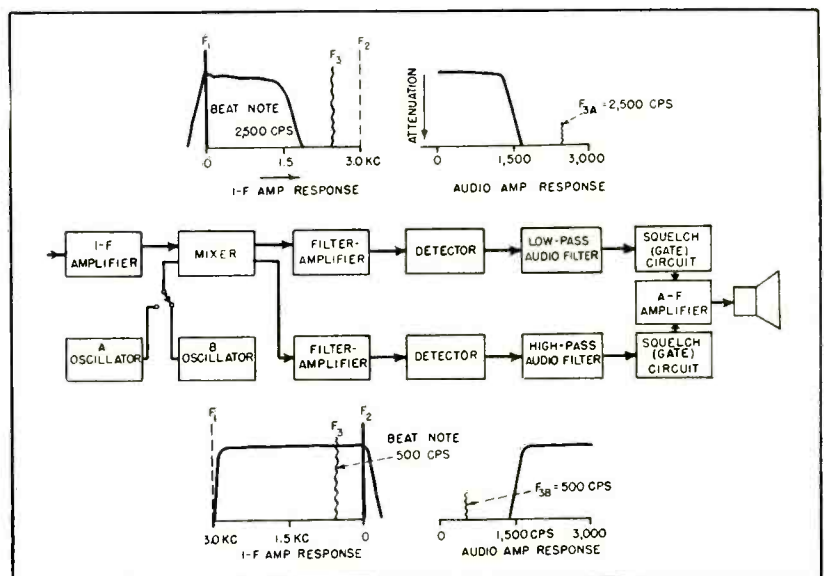 F1
F2
F3
BEAT NOTE
2,500 CPS
0
1.5
3.0 KC
I-F AMP RESPONSE
ATTENUATION
F3A = 2,500 CPS
0
1,500
3,000
AUDIO AMP RESPONSE
I-F
AMPLIFIER
MIXER
FILTER-
AMPLIFIER
DETECTOR
LOW-PASS
AUDIO FILTER
SQUELCH
(GATE)
CIRCUIT
A-F
AMPLIFIER
A
OSCILLATOR
B
OSCILLATOR
FILTER-
AMPLIFIER
DETECTOR
HIGH-PASS
AUDIO FILTER
SQUELCH
(GATE)
CIRCUIT
F1
F2
F3
BEAT NOTE
500 CPS
3.0 KC
1.5 KC
0
I-F AMP RESPONSE
F3B = 500 CPS
0
1,500 CPS
3,000
AUDIO AMP RESPONSE